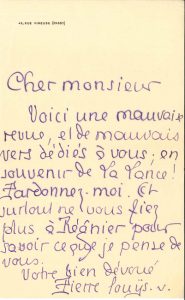 49, RUE VINEUSE (PASSY)
Cher monsieur
Voici une mauvaise
revue, et de mauvais
vers dédiés à vous ; en
souvenir de la
Pardonnez-moi. Et
surtout ne vous fiez
plus à Régnier pour
savoir ce que je pense de
vous.
Votre bien dévoué
Pierre Louÿs.